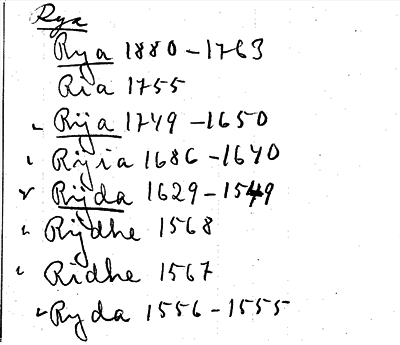 Rya
Rya 1880-1763
Ria 1755
Rija 1749-1650
Rijia 1686-1640
Rijda 1629-1549
Rijdhe 1568
Ridhe 1567
Ryda 1556-1555